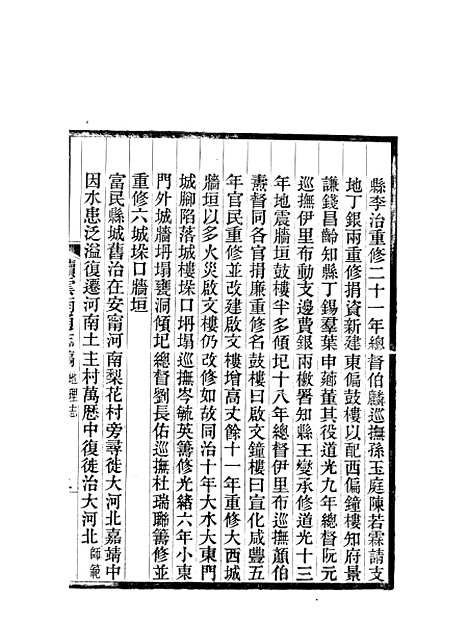 縣李治重修二十一年總督伯麟巡撫孫玉庭陳若霖請支
地丁銀兩重修捐資新建東偏鼓樓以配西偏鐘樓知府景
謙錢昌齡知縣丁錫羣葉申薌董其役道光九年總督阮元
巡撫伊里布動支邊費銀兩檄署知縣王燮承修道光十三
年地震牆垣鼓樓半多傾圮十八年總督伊里布巡撫顏伯
燾督同各官捐廉重修名鼓樓曰啟文鐘樓曰宣化咸豐五
年官民重修並改建啟文樓增高丈餘十一年重修大西城
牆垣以多火災啟文樓仍改修如故同治十年大水大東門
城腳陷落城樓垛口坍塌巡撫岑毓英籌修光緒六年小東
門外城牆坍塌甕洞傾圮總督劉長佑巡撫杜瑞聯籌修並
重修六城垛口牆垣
富民縣城舊治在安甯河南梨花村旁尋徙大河北嘉靖中
因水患泛溢復遷河南土主村萬歷中復徙治大河北師範
續雲南通志稿 地理志